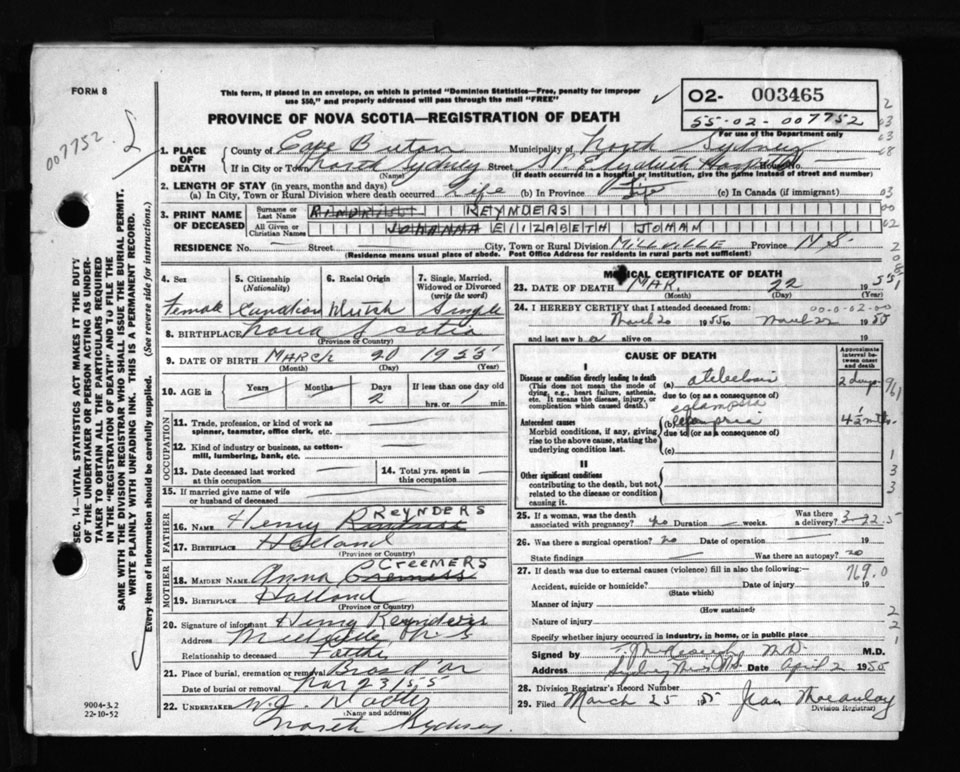 FORM 8
This form, if placed in an envelope, on which is printed "Dominion Statistics—Free, penalty for improper
use $50," and properly addressed will pass through the mail "FREE"
O2- 003465
55-02-007752
For use of the Department only
PROVINCE OF NOVA SCOTIA—REGISTRATION OF DEATH
007752
1. PLACE OF DEATH
County of Cape Breton Municipality of North Sydney
If in City or Town North Sydney Street St. Elizabeth Hospital
(Name) (If death occurred in a hospital or institution, give the name instead of street and number)
2. LENGTH OF STAY (in years, months and days)
(a) In City, Town or Rural Division where death occurred Life (b) In Province Life (c) In Canada (if immigrant)
3. PRINT NAME OF DECEASED
Surname or Last Name REYNDERS
All Given or Christian Names JOHANNA ELIZABETH JOHAN
RESIDENCE No. — Street — City, Town or Rural Division MILLVILLE Province N S.
(Residence means usual place of abode. Post Office Address for residents in rural parts not sufficient)
4. Sex
Female
5. Citizenship
(Nationality)
Canadian
6. Racial Origin
Dutch
7. Single, Married,
Widowed or Divorced
(write the word)
Single
8. BIRTHPLACE Nova Scotia
(Province or Country)
9. DATE OF BIRTH MARCH 20 1955
(Month) (Day) (Year)
10. AGE in Years Months Days If less than one day old
2 hrs. or min.
OCCUPATION
11. Trade, profession, or kind of work as
spinner, teamster, office clerk, etc. —
12. Kind of industry or business, as cotton-
mill, lumbering, bank, etc. —
13. Date deceased last worked
at this occupation —
14. Total yrs. spent in
this occupation —
15. If married give name of wife
or husband of deceased —
FATHER
REYNDERS
16. NAME Henry
17. BIRTHPLACE Holland
(Province or Country)
MOTHER
CREEMERS
18. MAIDEN NAME Anna
19. BIRTHPLACE Holland
(Province or Country)
20. Signature of informant Henry Reynders
Address Millville N. S
Relationship to deceased Father
21. Place of burial, cremation or removal Bras d'or
Date of burial or removal Mar 23 1955
22. UNDERTAKER W.J.
(Name and address)
North Sydney
MEDICAL CERTIFICATE OF DEATH
23. DATE OF DEATH MAR. 22 1955
(Month) (Day) (Year)
24. I HEREBY CERTIFY that I attended deceased from
March 20 1955 to March 22 1955
and last saw h alive on 19
CAUSE OF DEATH
Approximate interval between onset and death
I
Disease or condition directly leading to death
(This does not mean the mode of
dying, e.g., heart failure, asthenia,
etc. It means the disease, injury, or
complication which caused death.)
(a) 2 days
due to (or as a consequence of)
eclampsia
Antecedent causes
Morbid conditions, if any, giving
rise to the above cause, stating the
underlying condition last.
(b)
due to (or as a consequence of)
(c)
II
Other significant conditions
contributing to the death, but not
related to the disease or condition
causing it.
25. If a woman, was the death
associated with pregnancy? no Duration — weeks. Was there
a delivery?
26. Was there a surgical operation? no Date of operation — 19
State findings — Was there an autopsy? no
27. If death was due to external causes (violence) fill in also the following:—
769.0
Accident, suicide or homicide? Date of injury 19
(State which)
Manner of injury
(How sustained)
Nature of injury
Specify whether injury occurred in industry, in home, or in public place
Signed by M.D. M.D.
Address Sydney Mines N.S. Date April 2 1955
28. Division Registrar's Record Number
29. Filed March 25 1955 Jean Macaulay
Division Registrar
SEC. 14—VITAL STATISTICS ACT MAKES IT THE DUTY
OF THE UNDERTAKER OR PERSON ACTING AS UNDER-
TAKER TO OBTAIN ALL THE PARTICULARS REQUIRED
IN THE "REGISTRATION OF DEATH" AND TO FILE THE
SAME WITH THE DIVISION REGISTRAR WHO SHALL ISSUE THE BURIAL PERMIT.
WRITE PLAINLY WITH UNFADING INK. THIS IS A PERMANENT RECORD.
Every item of information should be carefully supplied. (See reverse side for instructions.)
9004-3.2
22-10-52